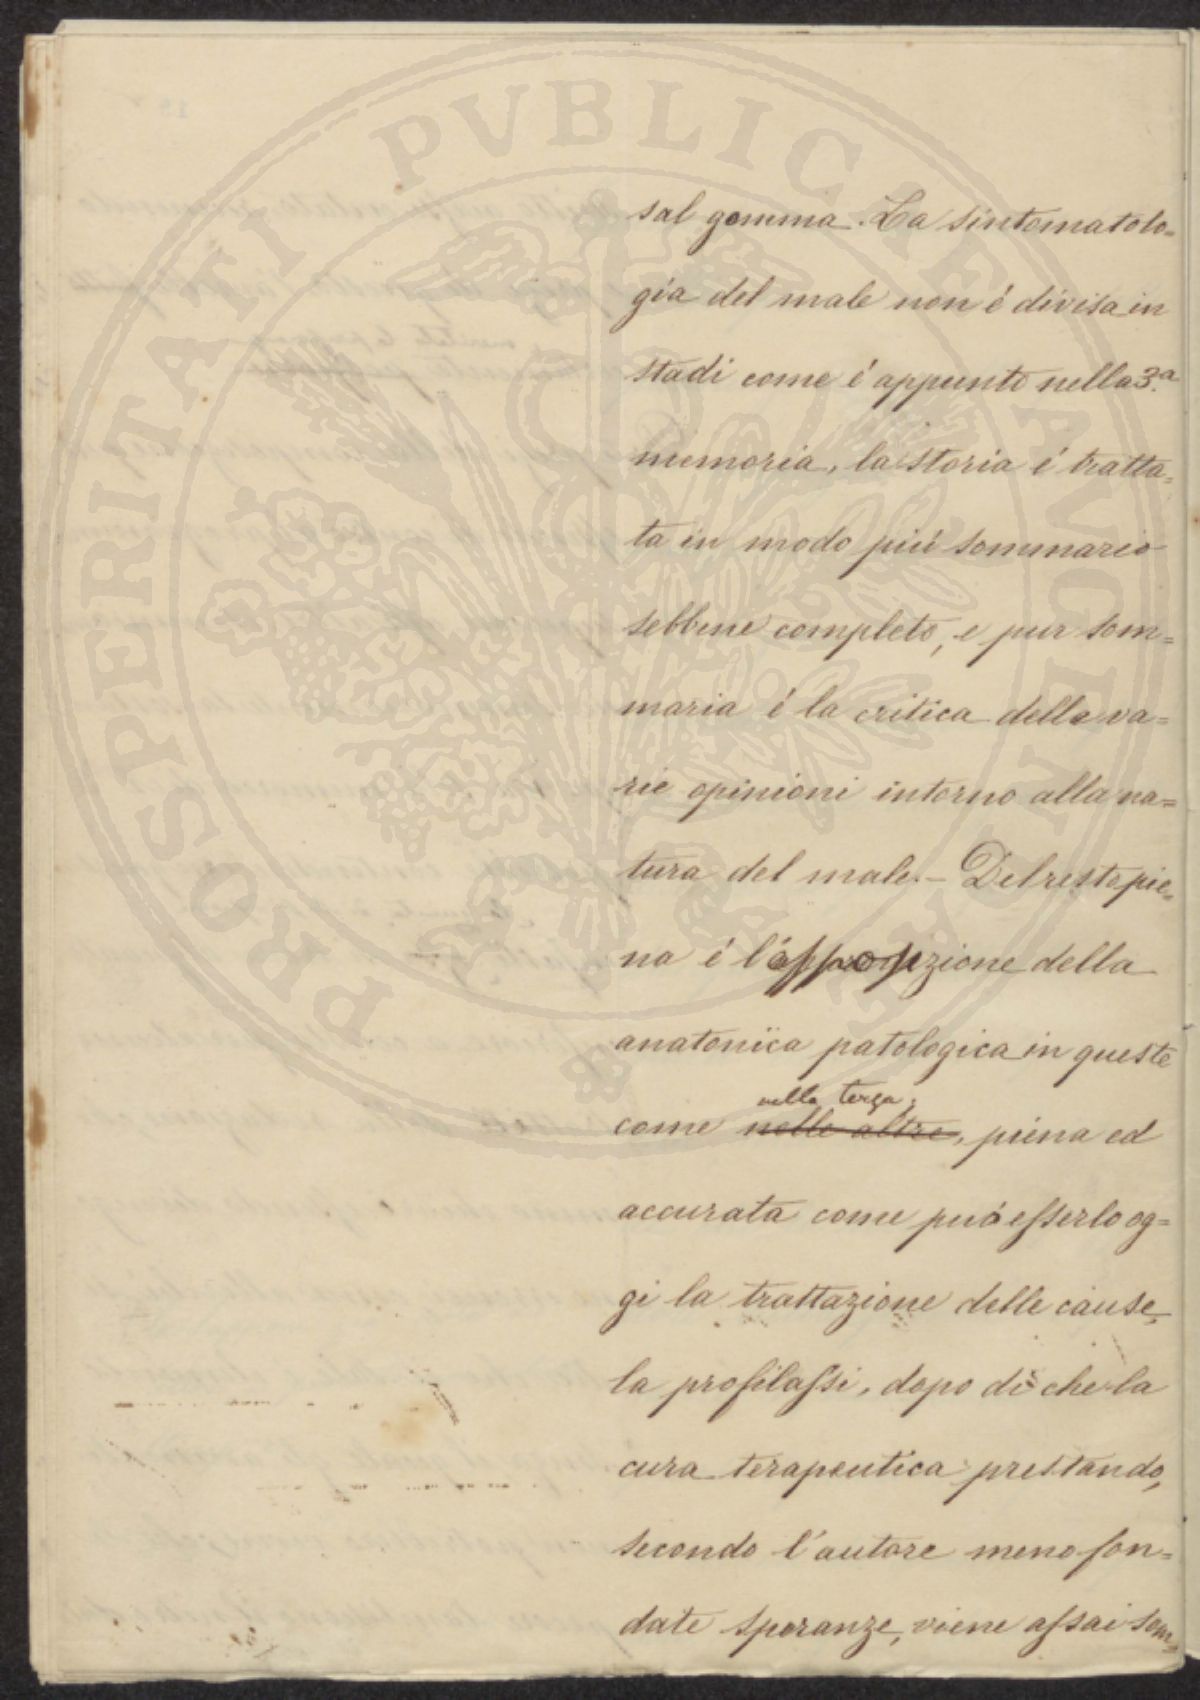 PROSPERITATI PVBLICAE AVGENDAE
sal gemma. La sintomatolo=
gia del male non é divisa in
stadi come é appunto nella 3.a
memoria, la storia é tratta=
ta in modo piú sommario
sebbene completo, e pur som=
maria é la critica delle va=
rie opinioni intorno alla na=
tura del male. – Del resto pie=
na é l'esposizione della
anatomica patologica in queste
nella terza;
come nelle altre, piena ed
accurata come puó esserlo og=
gi la trattazione delle cause,
la profilassi, dopo di che la
cura terapeutica prestando,
secondo l'autore meno fon=
date speranze, viene assai som=